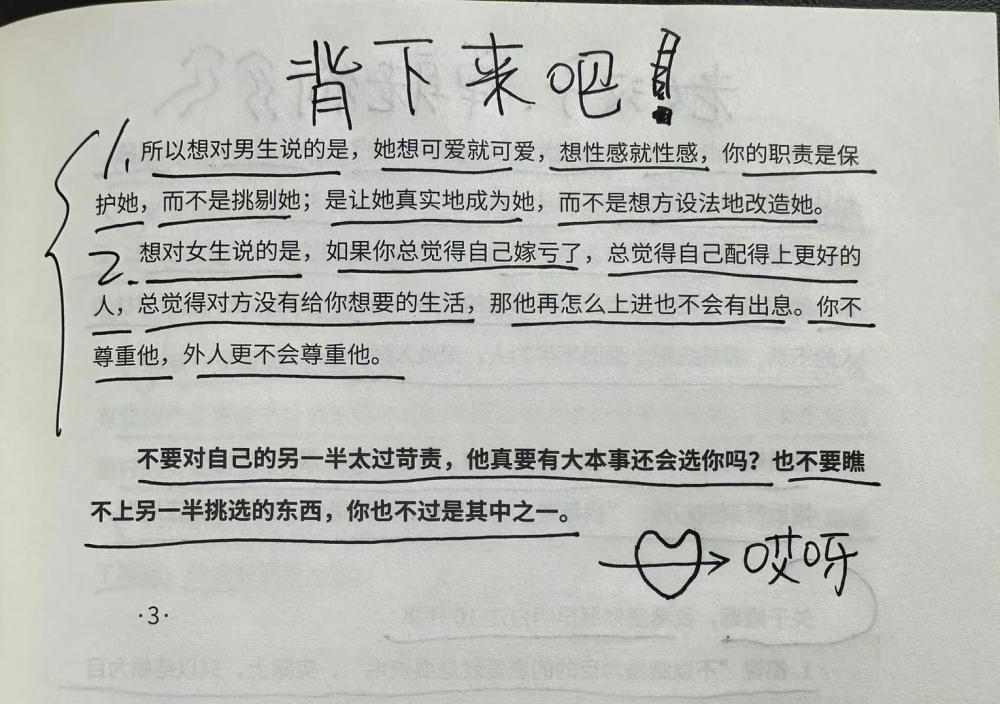 背下来吧！
1. 所以想对男生说的是，她想可爱就可爱，想性感就性感，你的职责是保
护她，而不是挑剔她；是让她真实地成为她，而不是想方设法地改造她。
2. 想对女生说的是，如果你总觉得自己嫁亏了，总觉得自己配得上更好的
人，总觉得对方没有给你想要的生活，那他再怎么上进也不会有出息。你不
尊重他，外人更不会尊重他。
不要对自己的另一半太过苛责，他真要有大本事还会选你吗？也不要瞧
不上另一半挑选的东西，你也不过是其中之一。
哎呀
·3·